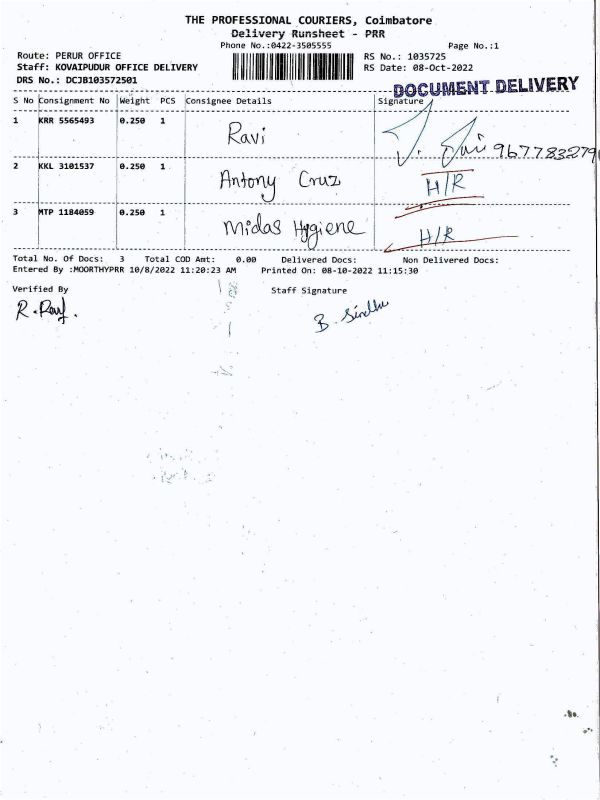 THE PROFESSIONAL COURIERS, Coimbatore
Delivery Runsheet - PRR
Phone No.:0422-3505555 Page No.:1
Route: PERUR OFFICE RS No.: 1035725
Staff: KOVAIPUDUR OFFICE DELIVERY RS Date: 08-Oct-2022
DRS No.: DCJB103572501
DOCUMENT DELIVERY
S No Consignment No Weight PCS Consignee Details Signature
1 KRR 5565493 0.250 1 Ravi 967783279
2 KKL 3101537 0.250 1 Antony Cruz H/R
3 MTP 1184059 0.250 1 Midas Hygiene H/R
Total No. Of Docs: 3 Total COD Amt: 0.00 Delivered Docs: Non Delivered Docs:
Entered By :MOORTHYPRR 10/8/2022 11:20:23 AM Printed On: 08-10-2022 11:15:30
Verified By Staff Signature
B. Sindhu